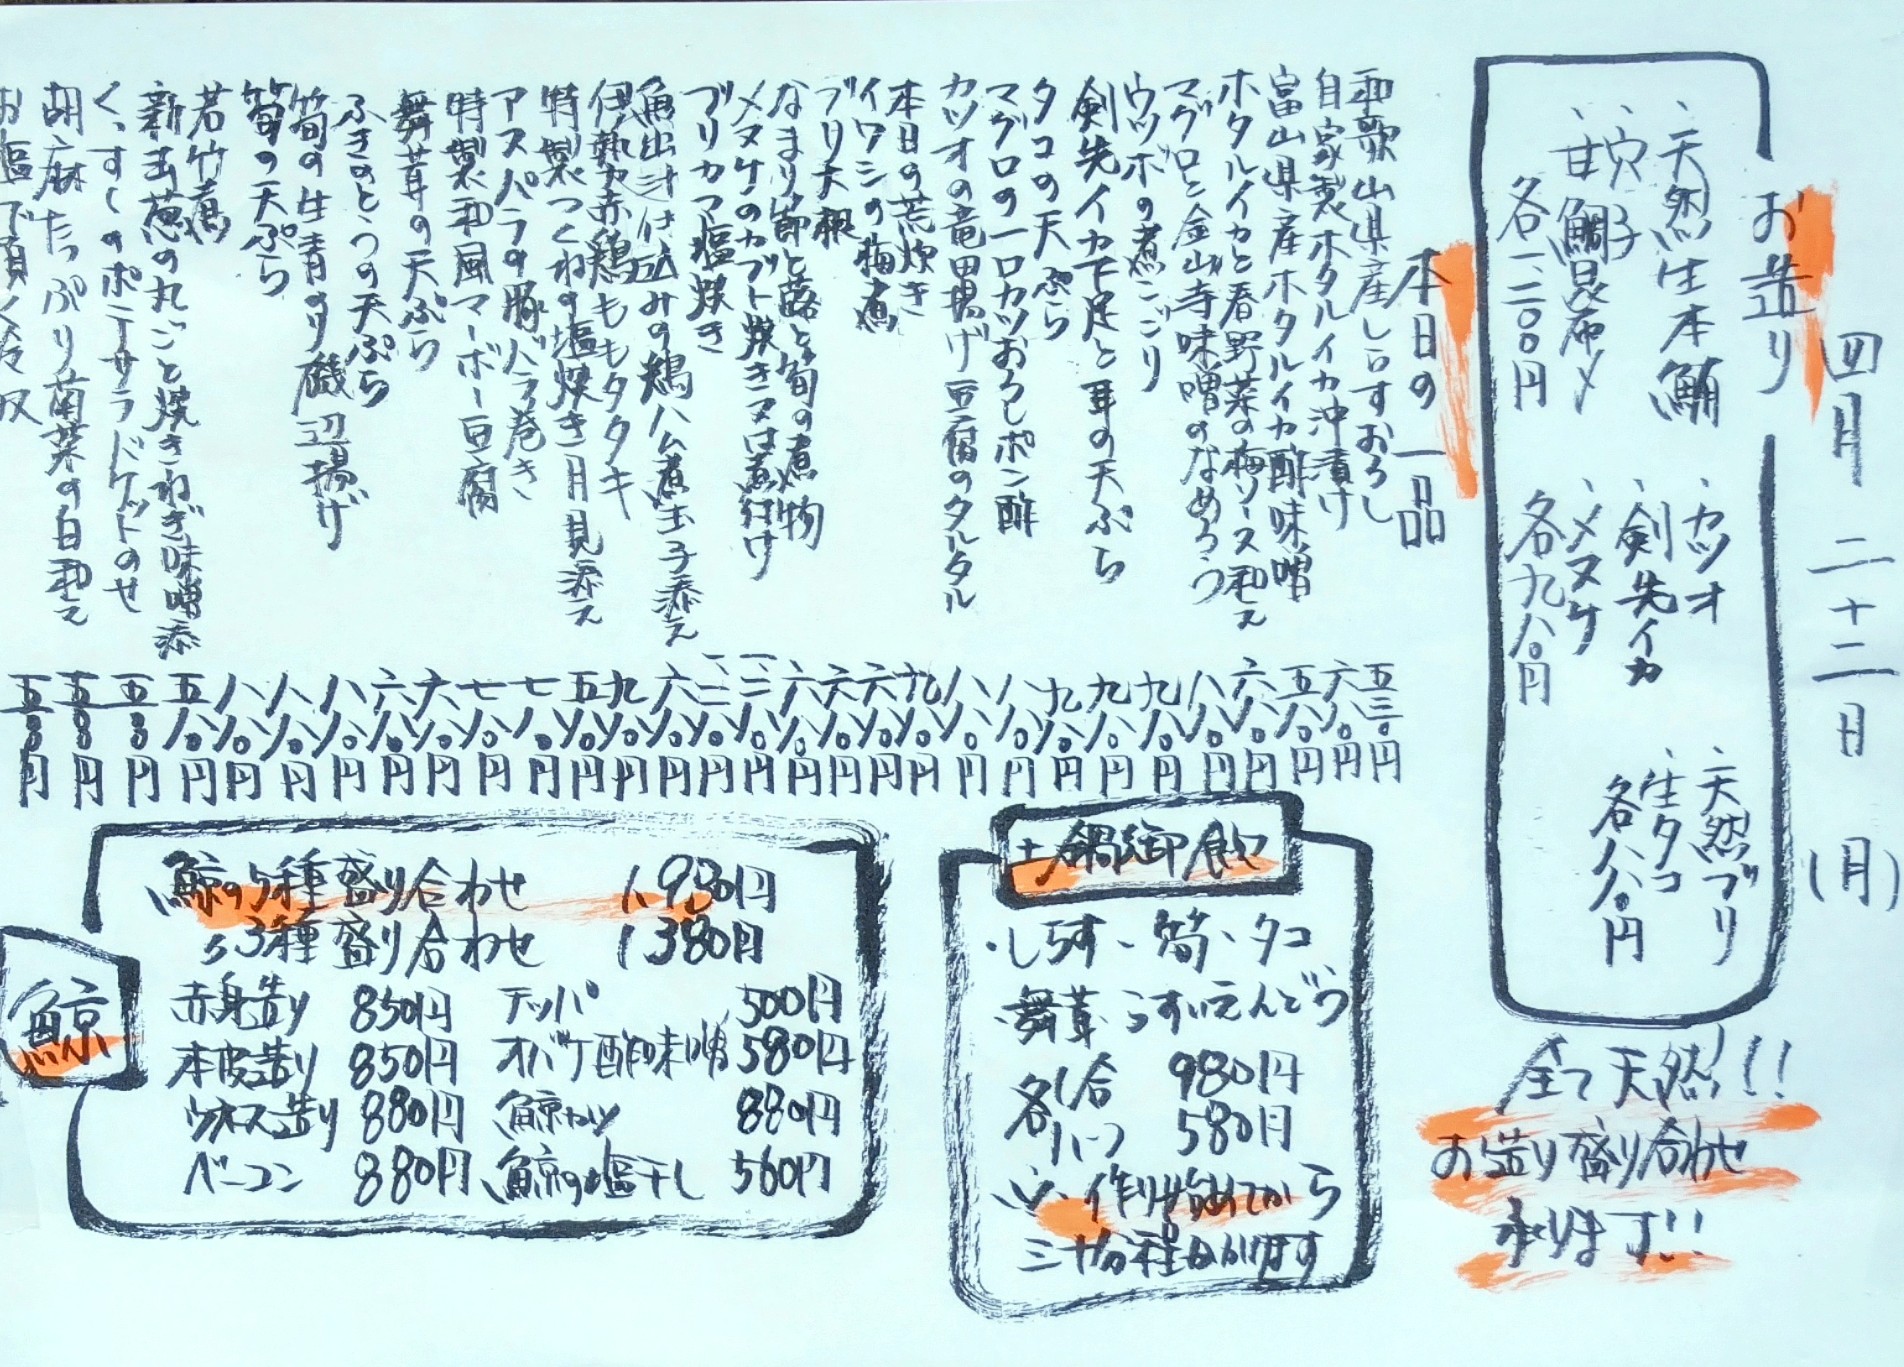 四月二十二日(月)
お造り
、天然生本鮪
、穴子
、甘鯛昆布〆
各一、二〇〇円
、カツオ
、剣先イカ
、メヌケ
各九八〇円
、天然ブリ
、生タコ
各八八〇円
全て天然!!
お造り盛り合わせ
承ります!!
本日の一品
和歌山県産しらすおろし 五三〇円
自家製ホタルイカ沖漬け 六八〇円
富山県産ホタルイカ酢味噌 五八〇円
ホタルイカと春野菜の梅ソース和え 六八〇円
マグロと金山寺味噌のなめろう 八八〇円
ウツボの煮こごり 九八〇円
剣先イカ下足と耳の天ぷら 九八〇円
タコの天ぷら 九八〇円
マグロの一口カツおろしポン酢 八八〇円
カツオの竜田揚げ豆腐のタルタル 八八〇円
本日の荒炊き
イワシの梅煮
ブリ大根
なまり節と蕗と筍の煮物
メヌケのカブト焼き又は煮付け
ブリカマ塩焼き
魚出汁仕込みの鶏ハム煮玉子添え
伊勢赤鶏ももタタキ
特製つくねの塩焼き月見添え
アスパラの豚バラ巻き
特製和風マーボー豆腐
舞茸の天ぷら
ふきのとうの天ぷら
筍の生青のり磯辺揚げ
筍の天ぷら
若竹煮
新玉葱の丸ごと焼きねぎ味噌添
くっすくのポテサラドケットのせ
胡麻たっぷり菊菜の白和え
お塩で頂く冷奴
土鍋御飯
・しらす、筍、タコ
、舞茸、うすいえんどう
各一合 980円
各ハーフ 580円
※作り始めてから
三十分程かかります
鯨
鯨の5種盛り合わせ 1,930円
〃3種盛り合わせ 1,380円
赤身造り 850円 テッパ 500円
本皮造り 850円 オバケ酢味噌 580円
ウネス造り 880円 鯨カツ 880円
ベーコン 880円 鯨の塩干し 560円